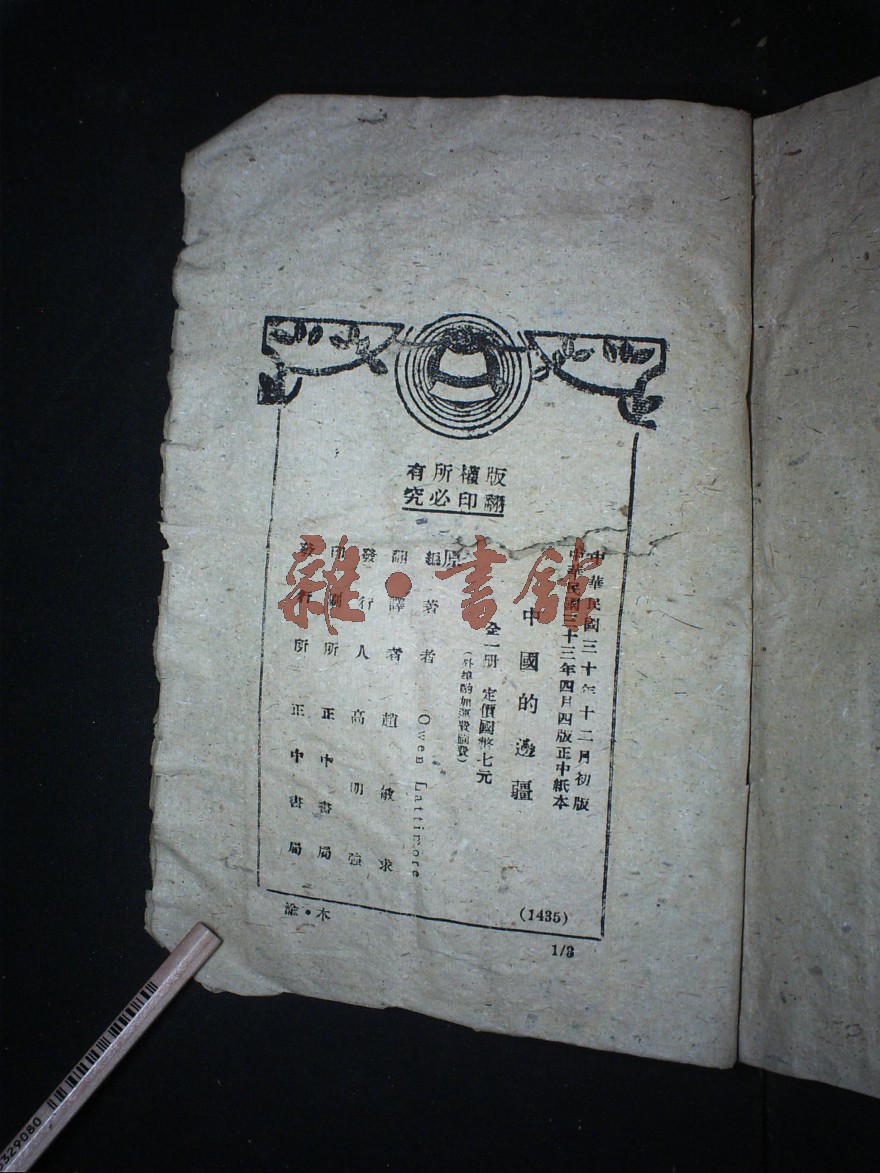 版權所有
翻印必究
中華民國三十年十二月初版
中華民國三十三年四月四版正中紙本
中國的邊疆
全一册 定價國幣七元
(外埠酌加運費匯費)
原編著者 Owen Lattimore
翻譯者 趙敏求
發行人 高明強
印刷所 正中書局
發行所 正中書局
(1435)
渝•木
1/3
雜•書館
329080